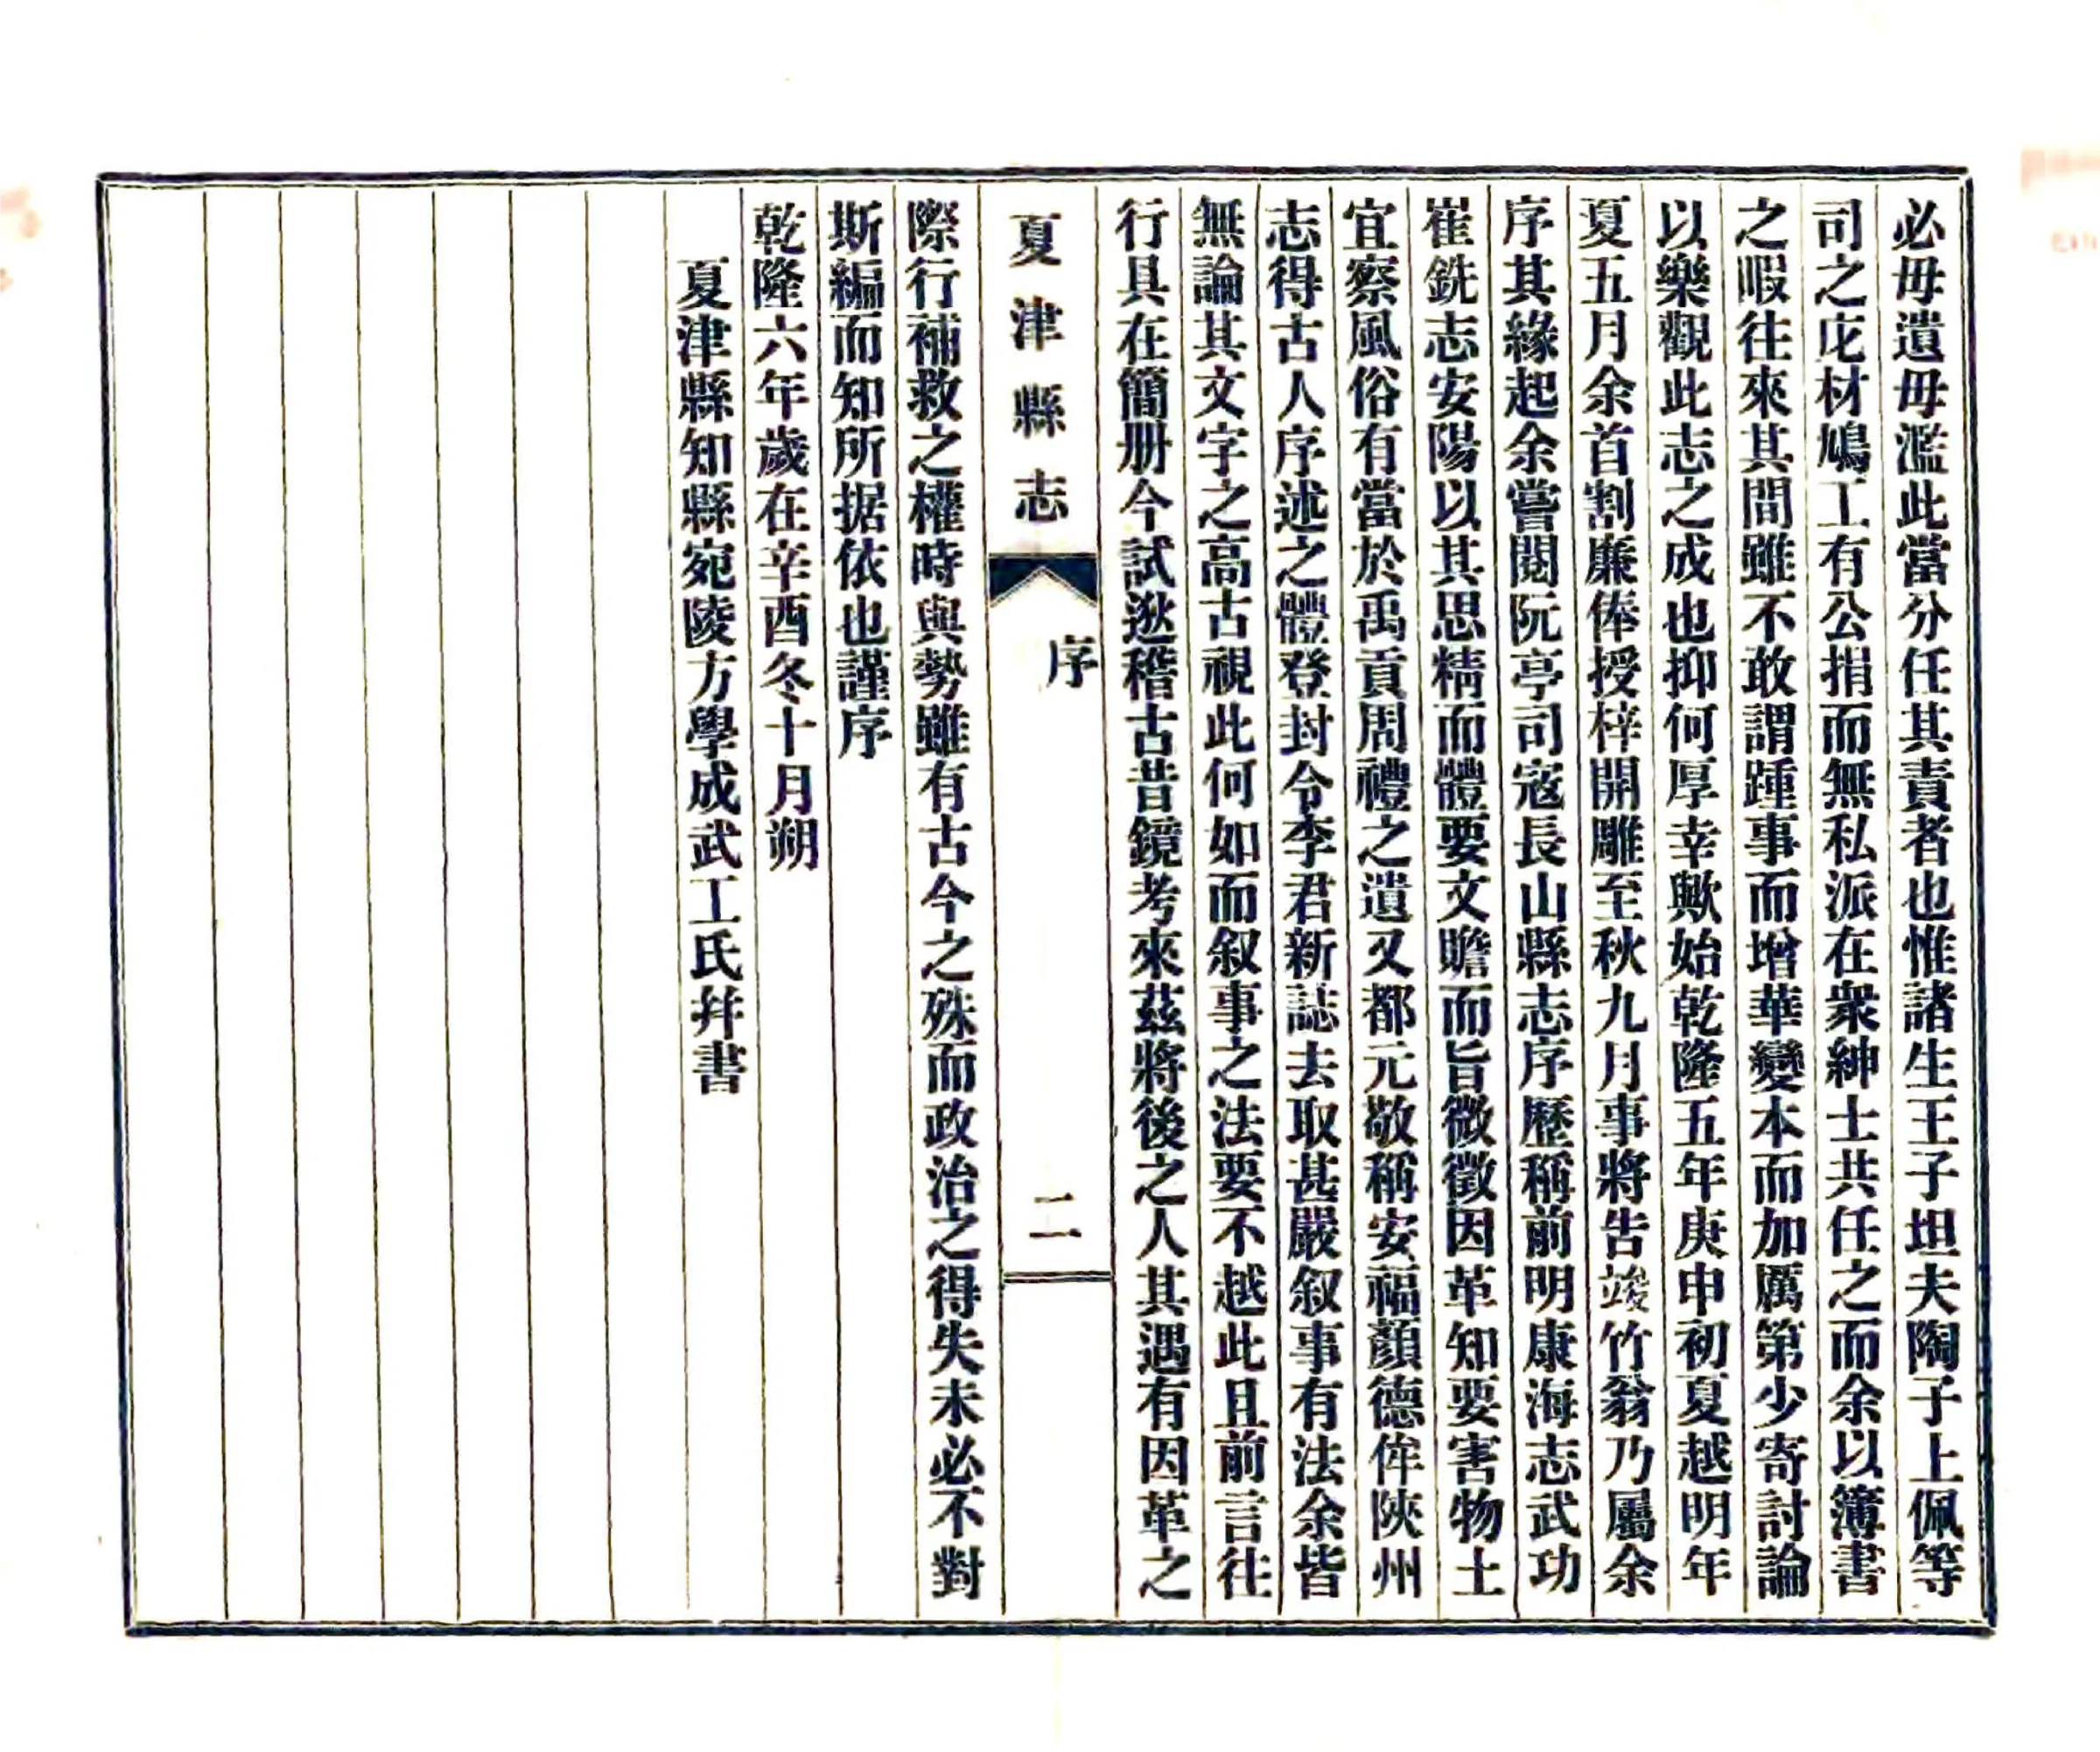 必毋遺毋濫此當分任其責者也惟諸生王子坦夫陶子上佩等
司之庀材鳩工有公捐而無私派在衆紳士共任之而余以簿書
之暇往來其間雖不敢謂踵事而增華變本而加厲第少寄討論
以樂觀此志之成也抑何厚幸歟始乾隆五年庚申初夏越明年
夏五月余首割廉俸授梓開雕至秋九月事將告竣竹翁乃屬余
序其緣起余嘗閱阮亭司寇長山縣志序歷稱前明康海志武功
崔銑志安陽以其思精而體要文贍而旨微徵因革知要害物土
宜察風俗有當於禹貢周禮之遺又都元敬稱安福顏德侔陝州
志得古人序述之體登封令李君新誌去取甚嚴叙事有法余皆
無論其文字之高古視此何如而叙事之法要不越此且前言往
行具在簡册今試逖稽古昔鏡考來茲將後之人其遇有因革之
夏津縣志
序
二
際行補救之權時與勢雖有古今之殊而政治之得失未必不對
斯編而知所据依也謹序
乾隆六年歲在辛酉冬十月朔
夏津縣知縣宛陵方學成武工氏幷書